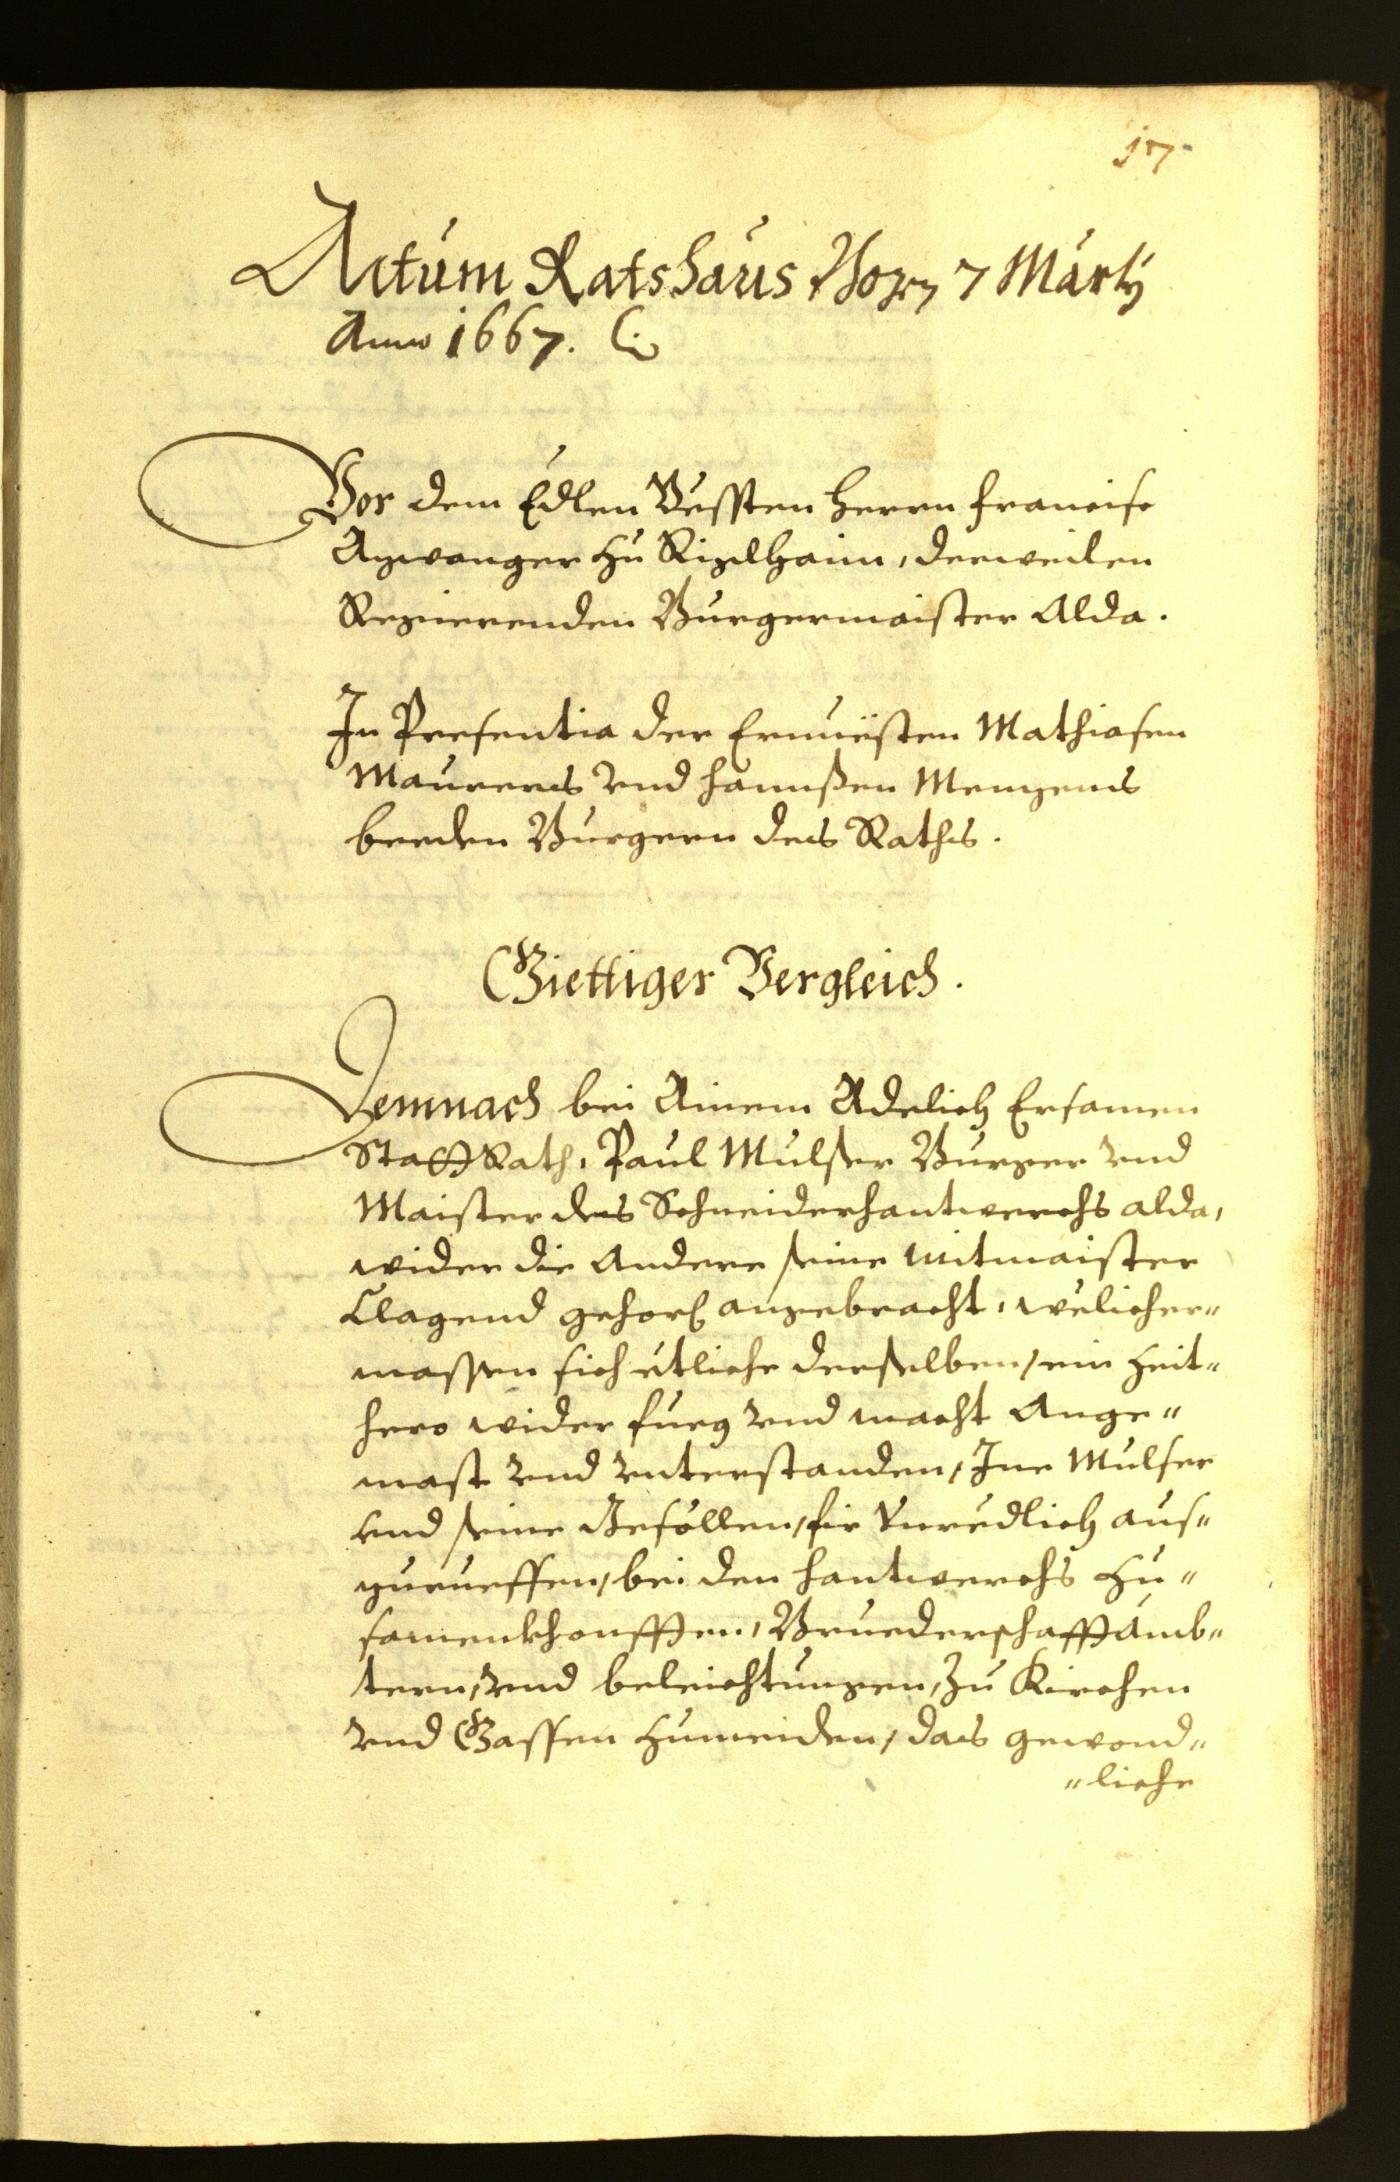 17
Actum Ratshaus Bozen 7 Marty
Anno 1667.
Vor dem Edlen Vessten Herrn Francisc
Azwanger zu Rizlhaim, derweilen
Regierenden Burgermaister Alda.
In Presentia der Ernuësten Mathiasen
Maurers vnd Hannßen Menzens
beeden Burgern des Raths.
Giettiger Vergleich.
Demnach bei Ainem Adelich Ersamen
Statt Rath, Paul Mulser Burger vnd
Maister des Schneiderhantwerchs alda,
wider die Andere seine Mitmaister
Clagend gehors angebracht, welicher„
massen sich etliche derselben, ein Zeit„
hero wider fueg vnd macht Ange„
mast vnd vnterstanden, Ine Mulser
vnd seine Gesöllen, fir Vnredlich aus„
zuruessen, bei den Hantwerchs Zu„
samenkhonfften, Bruederschafft ämb„
tern, vnd beleichtungen, Zu Kirchen
vnd Gassen Zumeiden, das gewond„
„liche